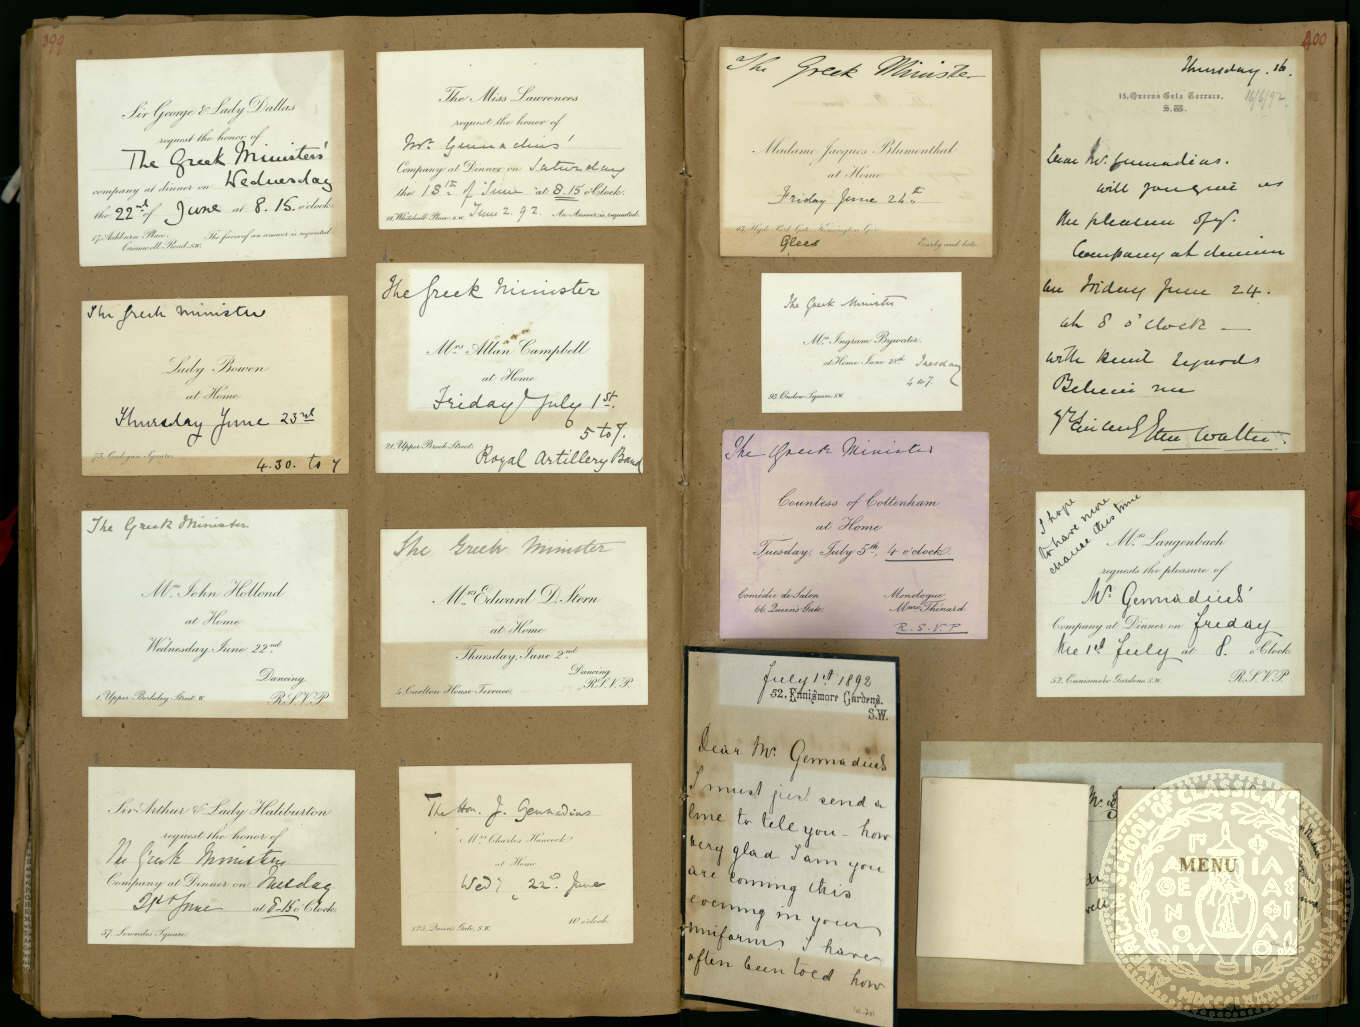 399
Sir George & Lady Dallas
request the honor of
The Greek Ministers'
company at dinner on Wednesday
the 22nd of June at 8.15. o'clock
17, Ashburn Place,
Cromwell Road, S.W.
The favor of an answer is requested.
The Greek Minister
Lady Bowen
at Home
Thursday June 23rd
75, Cadogan Square.
4.30. to 7
The Greek Minister
Mrs. John Hollond
at Home
Wednesday, June 22nd
Dancing
1, Upper Berkeley Street. W.
R.S.V.P.
Sir Arthur & Lady Haliburton
request the honor of
The Greek Ministers
Company at Dinner on Tuesday
21st June at 8-15 o'Clock.
57, Lowndes Square.
The Miss Lawrences
request the honor of
Mr. Gennadius'
Company at Dinner on Saturday
the 18th of June at 8.15 o'Clock.
Whitehall Place. S.W. June 2. 92. An Answer is requested.
The Greek Minister
Mrs. Allan Campbell
at Home
Friday July 1st.
5 to 7.
21, Upper Brook Street.
Royal Artillery Band
The Greek Minister
Mrs. Edward D. Stern
at Home
Thursday, June 2nd
Dancing
4, Carlton House Terrace.
R.S.V.P.
The Hon. J. Gennadius
Mrs. Charles Hancock
at Home
Wedy 22nd June
125, Queen's Gate, S.W.
10 o'clock
400
The Greek Minister
Madame Jacques Blumenthal
at Home
Friday June 24th
Hyde Park Gate
Glees
Early and late.
The Greek Minister
Mrs. Ingram Bywater.
at Home June 28th Tuesday
4 to 7.
93, Onslow Square. S.W.
The Greek Minister
Countess of Cottenham
at Home
Tuesday, July 5th, 4 o'clock.
Comédie de Salon
Monologue
66, Queen's Gate.
Mme. Thénard
R.S.V.P.
July 1st 1892
52, Ennismore Gardens.
S.W.
Dear Mr. Gennadius
I must just send a
line to tell you - how
very glad I am you
are coming this
evening in your
uniform I have
often been told how
Thursday. 16.
15, Queen's Gate Terrace.
S.W.
16/6/92.
Dear Mr. Gennadius.
Will you give us
the pleasure of yr.
Company at dinner
on Friday June 24.
at 8 o'clock —
With kind regards
Believe me
yrs sincerely
I hope
to have more
chance this time
Mrs. Langenbach
requests the pleasure of
Mr. Gennadius'
Company at Dinner on Friday
the 1st July at 8. o'Clock
52, Ennismore Gardens. S.W.
R.S.V.P.
MENU
AMERICAN SCHOOL OF CLASSICAL STUDIES AT ATHENS
MDCCCLXXXI